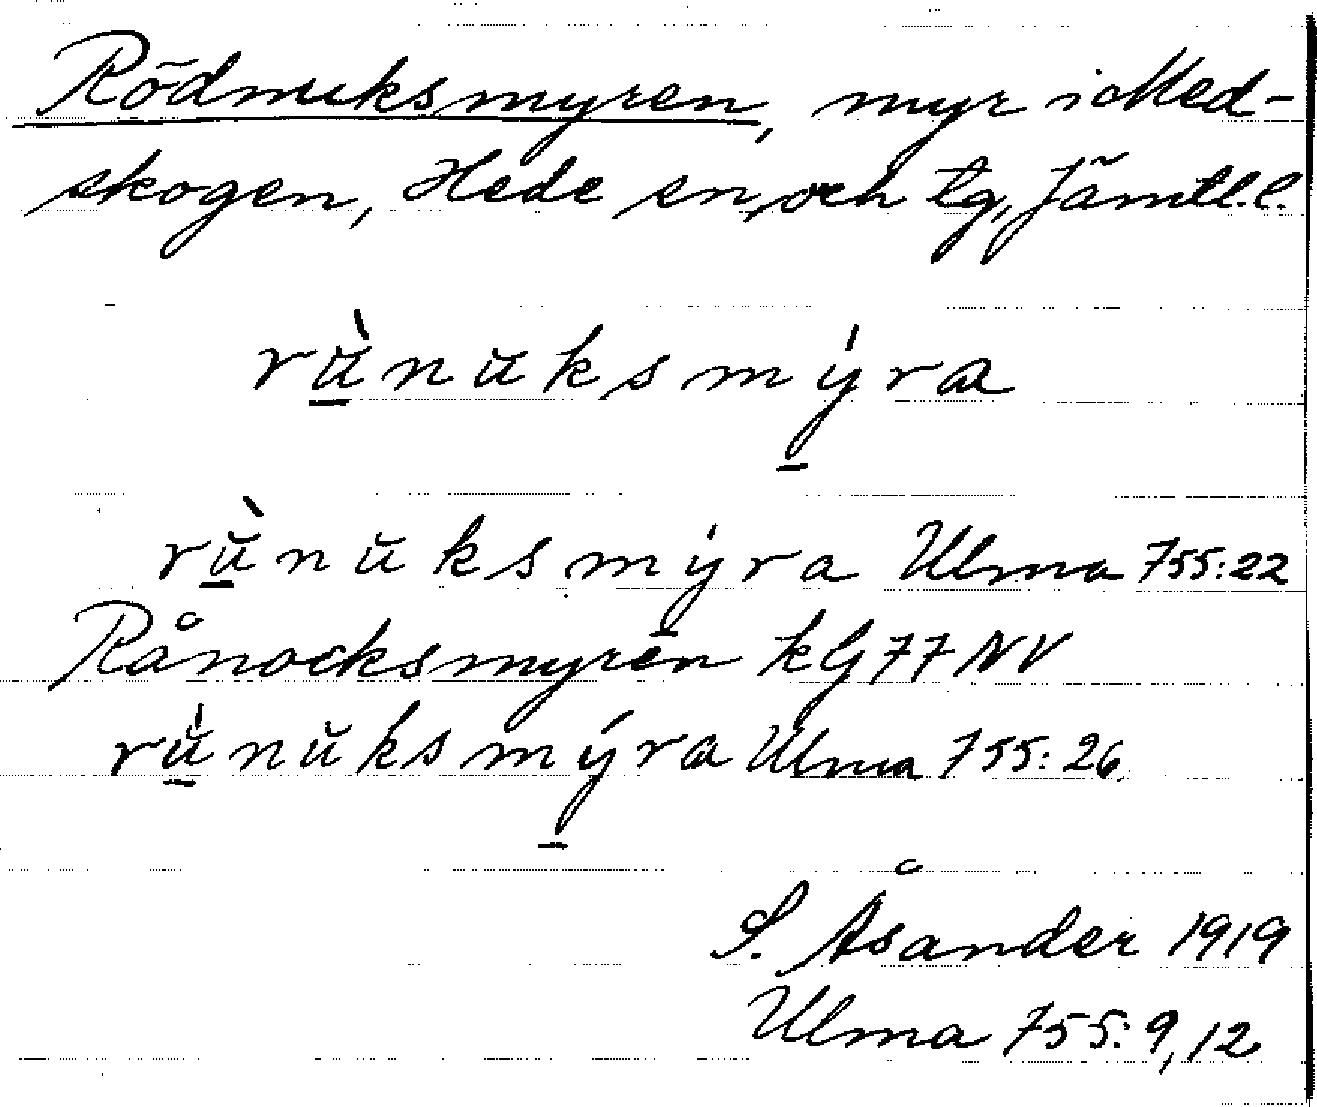 Rödmuksmyren, myr i Med-
skogen, Hede sn, och tg, Jämtl.l.
rŭ̱̀nŭksmý̱ra
rŭ̱̀nŭksmý̱ra Ulma 755:22
Rånocksmyren kG77NV
rŭ̱̀nŭksmý̱ra Ulma 755:26
S. Åsander 1919
Ulma 755:9,12